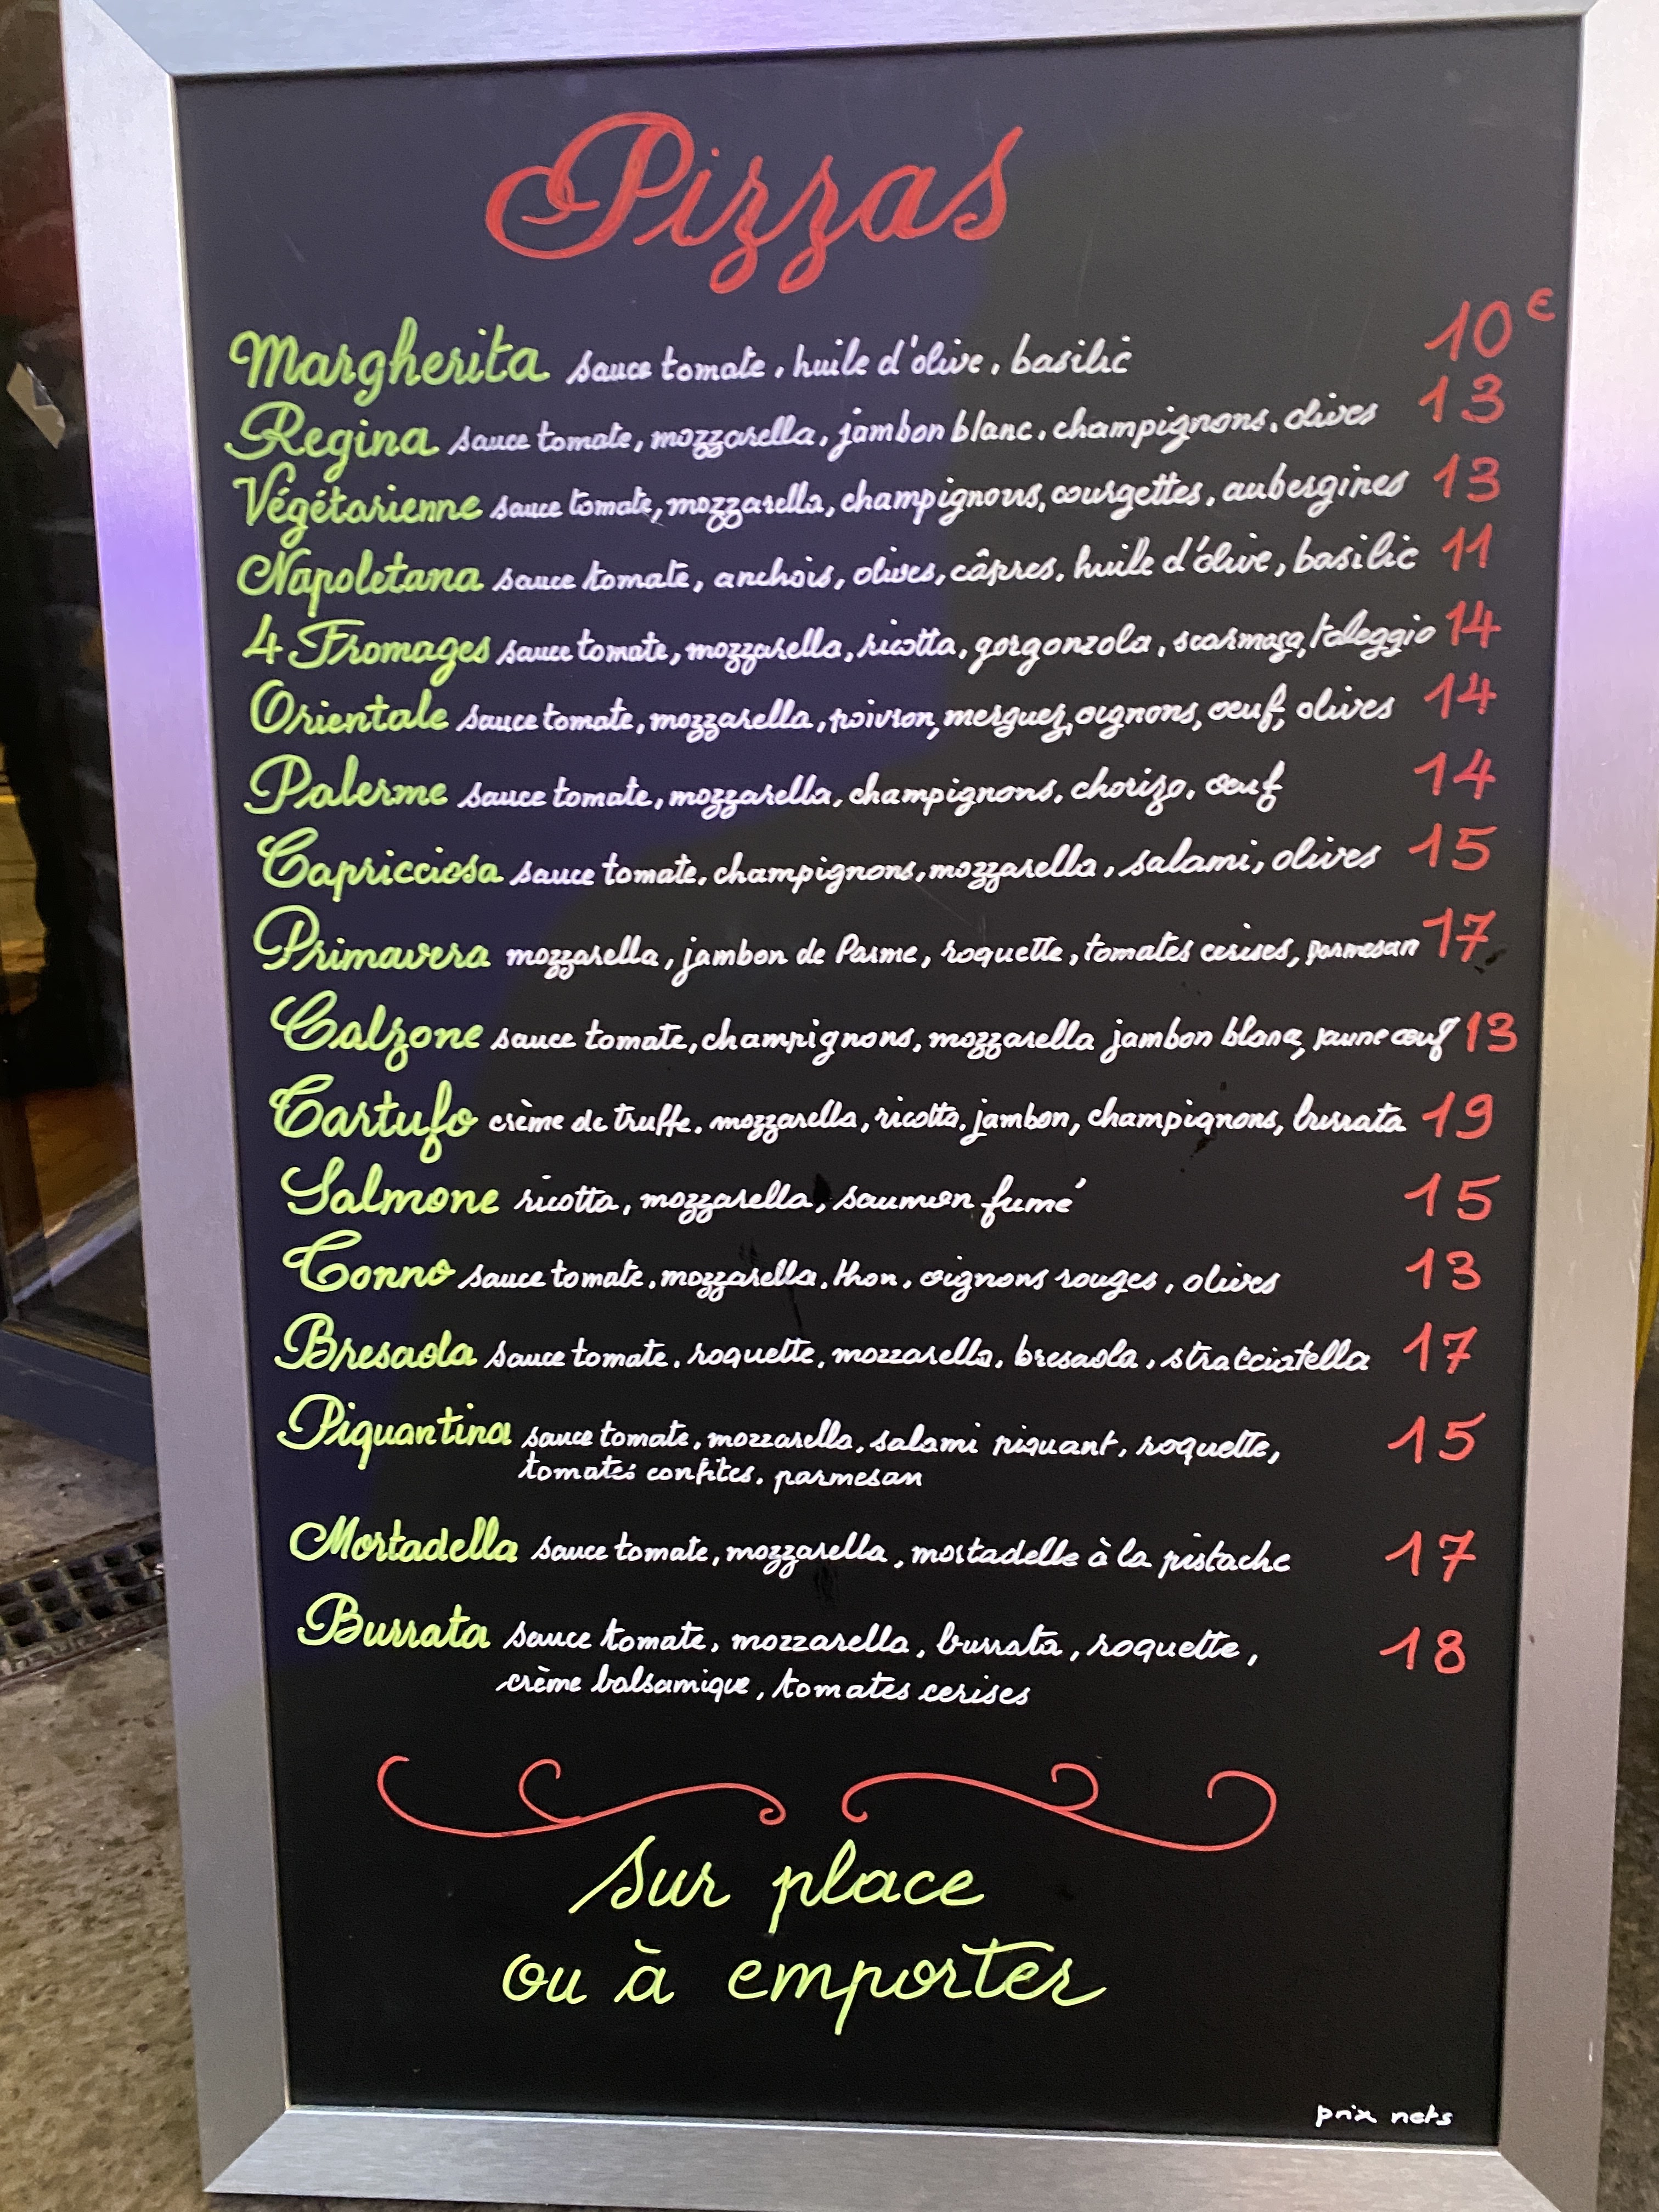 Pizzas
Margherita sauce tomate, huile d'olive, basilic 10€
Regina sauce tomate, mozzarella, jambon blanc, champignons, olives 13
Végétarienne sauce tomate, mozzarella, champignons, courgettes, aubergines 13
Napoletana sauce tomate, anchois, olives, câpres, huile d'olive, basilic 11
4 Fromages sauce tomate, mozzarella, ricotta, gorgonzola, scarmoza, taleggio 14
Orientale sauce tomate, mozzarella, poivron, merguez, oignons, oeuf, olives 14
Palerme sauce tomate, mozzarella, champignons, chorizo, oeuf 14
Capricciosa sauce tomate, champignons, mozzarella, salami, olives 15
Primavera mozzarella, jambon de Parme, roquette, tomates cerises, parmesan 17
Calzone sauce tomate, champignons, mozzarella jambon blanc, jaune oeuf 13
Tartufo crème de truffe, mozzarella, ricotta, jambon, champignons, burrata 19
Salmone ricotta, mozzarella, saumon fumé 15
Tonno sauce tomate, mozzarella, thon, oignons rouges, olives 13
Bresaola sauce tomate, roquette, mozzarella, bresaola, stracciatella 17
Piquantina sauce tomate, mozzarella, salami piquant, roquette, 15
tomates confites, parmesan
Mortadella sauce tomate, mozzarella, mortadelle à la pistache 17
Burrata sauce tomate, mozzarella, burrata, roquette, 18
crème balsamique, tomates cerises
Sur place
ou à emporter
prix nets